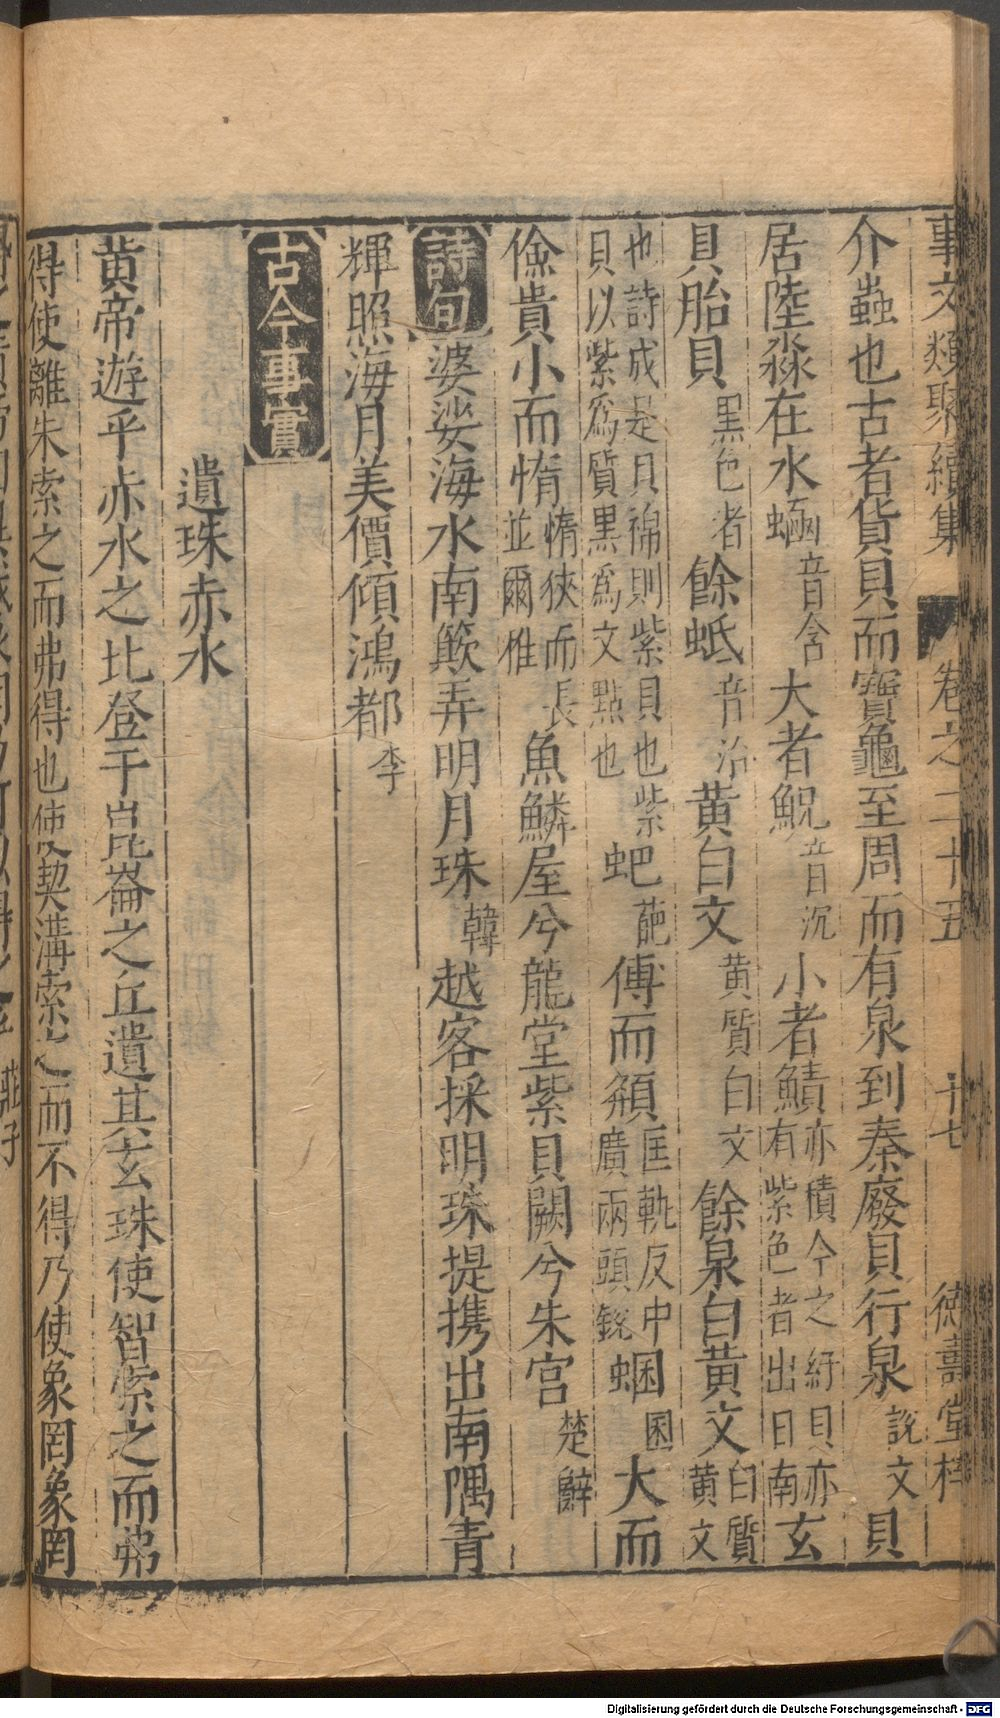 事文類聚續集 卷之二十五 十七 德壽堂梓
介蟲也古者貨貝而寶龜至周而有泉到秦廢貝行泉說文貝
居陸猋在水蜬音含大者魧音沉小者鰿亦積今之紆貝亦有紫色者出日南玄
貝胎貝黑色者餘蚳音治黃白文黃質白文餘泉白黃文白質黃文
也詩成是貝錦則紫貝也紫貝以紫爲質黑爲文點也蚆葩傅而頯匡軌反中廣兩頭銳蜠囷大而
儉貴小而惰惰狹而長並爾雅魚鱗屋兮龍堂紫貝闕兮朱宮楚辭
詩句 婆娑海水南簸弄明月珠韓越客採明珠提携出南隅青
輝照海月美價傾鴻都李
古今事實
遺珠赤水
黃帝遊乎赤水之北登于崑崙之丘遺其玄珠使智索之而弗
得使離朱索之而弗得也使契溝索之而不得乃使象罔象罔
莊子
Digitalisierung gefördert durch die Deutsche Forschungsgemeinschaft - DFG